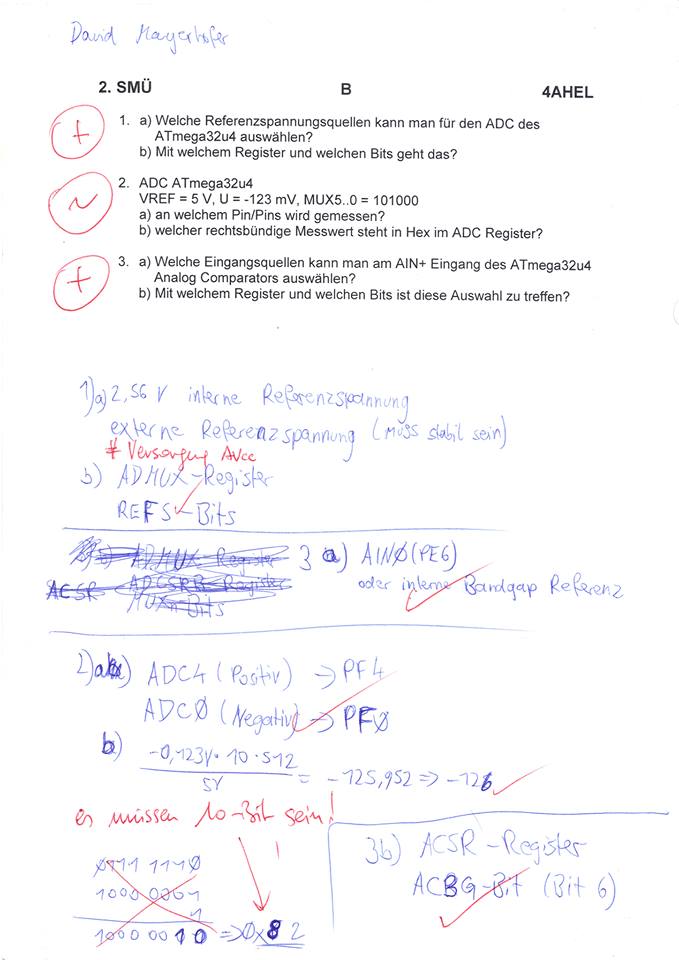 David Mayerhofer
2. SMÜ B 4AHEL
+ 1. a) Welche Referenzspannungsquellen kann man für den ADC des
ATmega32u4 auswählen?
b) Mit welchem Register und welchen Bits geht das?
~ 2. ADC ATmega32u4
VREF = 5 V, U = -123 mV, MUX5..0 = 101000
a) an welchem Pin/Pins wird gemessen?
b) welcher rechtsbündige Messwert steht in Hex im ADC Register?
+ 3. a) Welche Eingangsquellen kann man am AIN+ Eingang des ATmega32u4
Analog Comparators auswählen?
b) Mit welchem Register und welchen Bits ist diese Auswahl zu treffen?
1) a) 2,56 V interne Referenzspannung
externe Referenzspannung (Muss stabil sein)
# Versorgung AVcc
b) ADMUX-Register
REFS-Bits
ADMUX Register
ACSR ADCSRB Register
MUXn-Bits
3 a) AIN0 (PE6)
oder interne Bandgap Referenz
2) a) ADC4 (Positiv) → PF4
ADC0 (Negativ) → PF0
b) -0,123V · 10 · 512
5V
= -125,952 => -126
es müssen 10-Bit sein!
0111 1110
1000 0001
1
1000 0010 => 0x82
3b) ACSR-Register
ACBG-Bit (Bit 6)